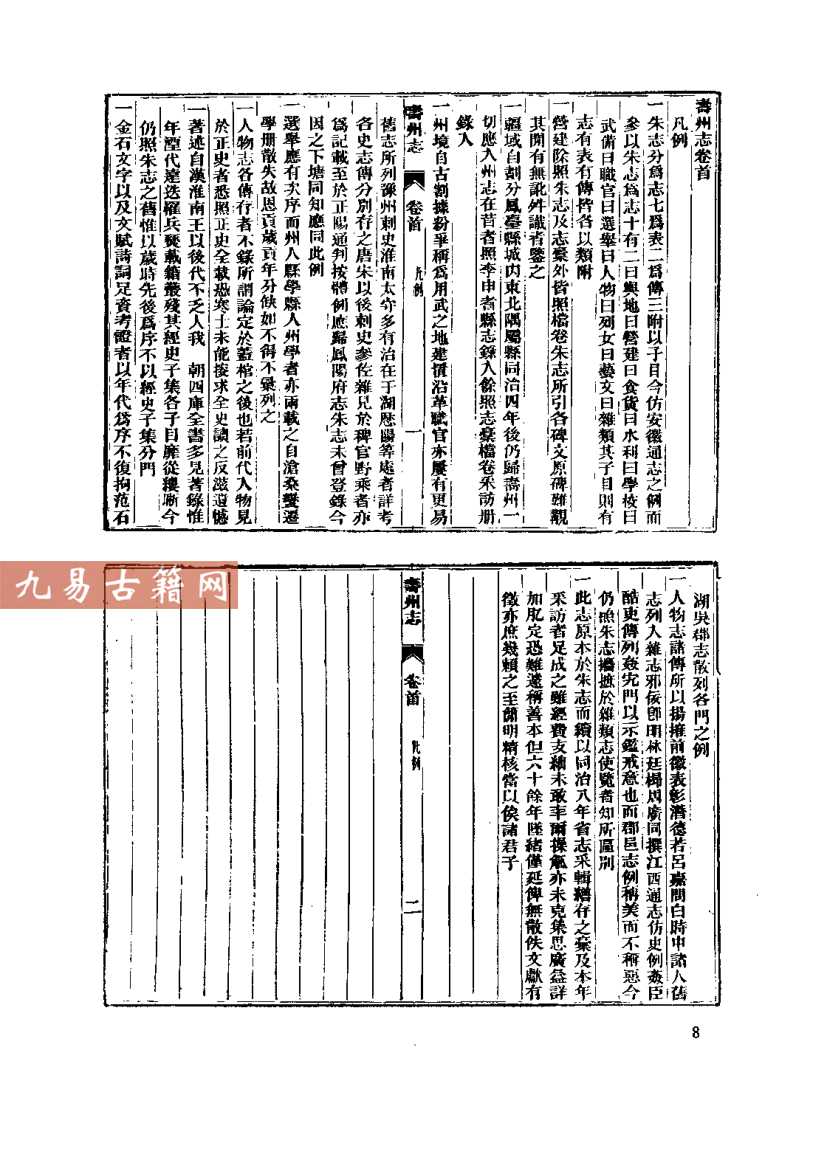 壽州志卷首
凡例
一朱志分爲志七爲表二爲傳三附以子目今仿安徽通志之例而
參以朱志爲志十有二曰輿地曰營建曰食貨曰水利曰學校曰
武備曰職官曰選舉曰人物曰列女曰藝文曰雜類其子目則有
志有表有傳皆各以類附
一營建除照朱志及志稾外皆照檔卷朱志所引各碑文原碑難觀
其閒有無訛舛識者鑒之
一疆域自劃分鳳臺縣城內東北隅屬縣同治四年後仍歸壽州一
切應入州志在昔者照李申耆縣志錄入餘照志稾檔卷采訪册
錄入
一州境自古割據紛爭稱爲用武之地建憤沿革職官亦屢有更易
壽州志
卷首
凡例
一
舊志所列豫州刺史淮南太守多有治在于湖歷陽等處者詳考
各史志傳分別存之唐宋以後刺史參佐雜見於稗官野乘者亦
爲記載至於正陽通判按體例應歸鳳陽府志朱志未曾登錄今
因之下塘同知應同此例
一選舉應有次序而州人縣學縣人州學者亦兩載之自滄桑變遷
學册散失故恩貢歲貢年分缺如不得不彙列之
一人物志各傳存者不錄所謂論定於蓋棺之後也若前代人物見
於正史者悉照正史全載恐寒士未能搜求全史讀之反滋遺憾
一著述自漢淮南王以後代不乏人我　朝四庫全書多見著錄惟
年湮代遠迭罹兵燹載籍叢殘其經史子集各子目靡從縷晰今
仍照朱志之舊惟以歲時先後爲序不以經史子集分門
一金石文字以及文賦詩詞足資考證者以年代爲序不復拘范石
湖吳郡志散列各門之例
一人物志諸傳所以揚搉前徽表彰潛德若呂嘉問白時中諸人舊
志列入雜志邪佞郎明林廷㭿周廣同撰江西通志仿史例姦臣
酷吏傳列姦宄門以示鑑戒意也而郡邑志例稱美而不稱惡今
仍照朱志攟摭於雜類志使覽者知所區別
一此志原本於朱志而續以同治八年省志采輯續存之稾及本年
采訪者足成之雖經費支絀未敢率爾操觚亦未克集思廣益詳
加勘定恐難遽稱善本但六十餘年墜緒僅延俾無散佚文獻有
徵亦庶幾賴之至簡明精核當以俟諸君子
壽州志
卷首
凡例
二
九易古籍网
8